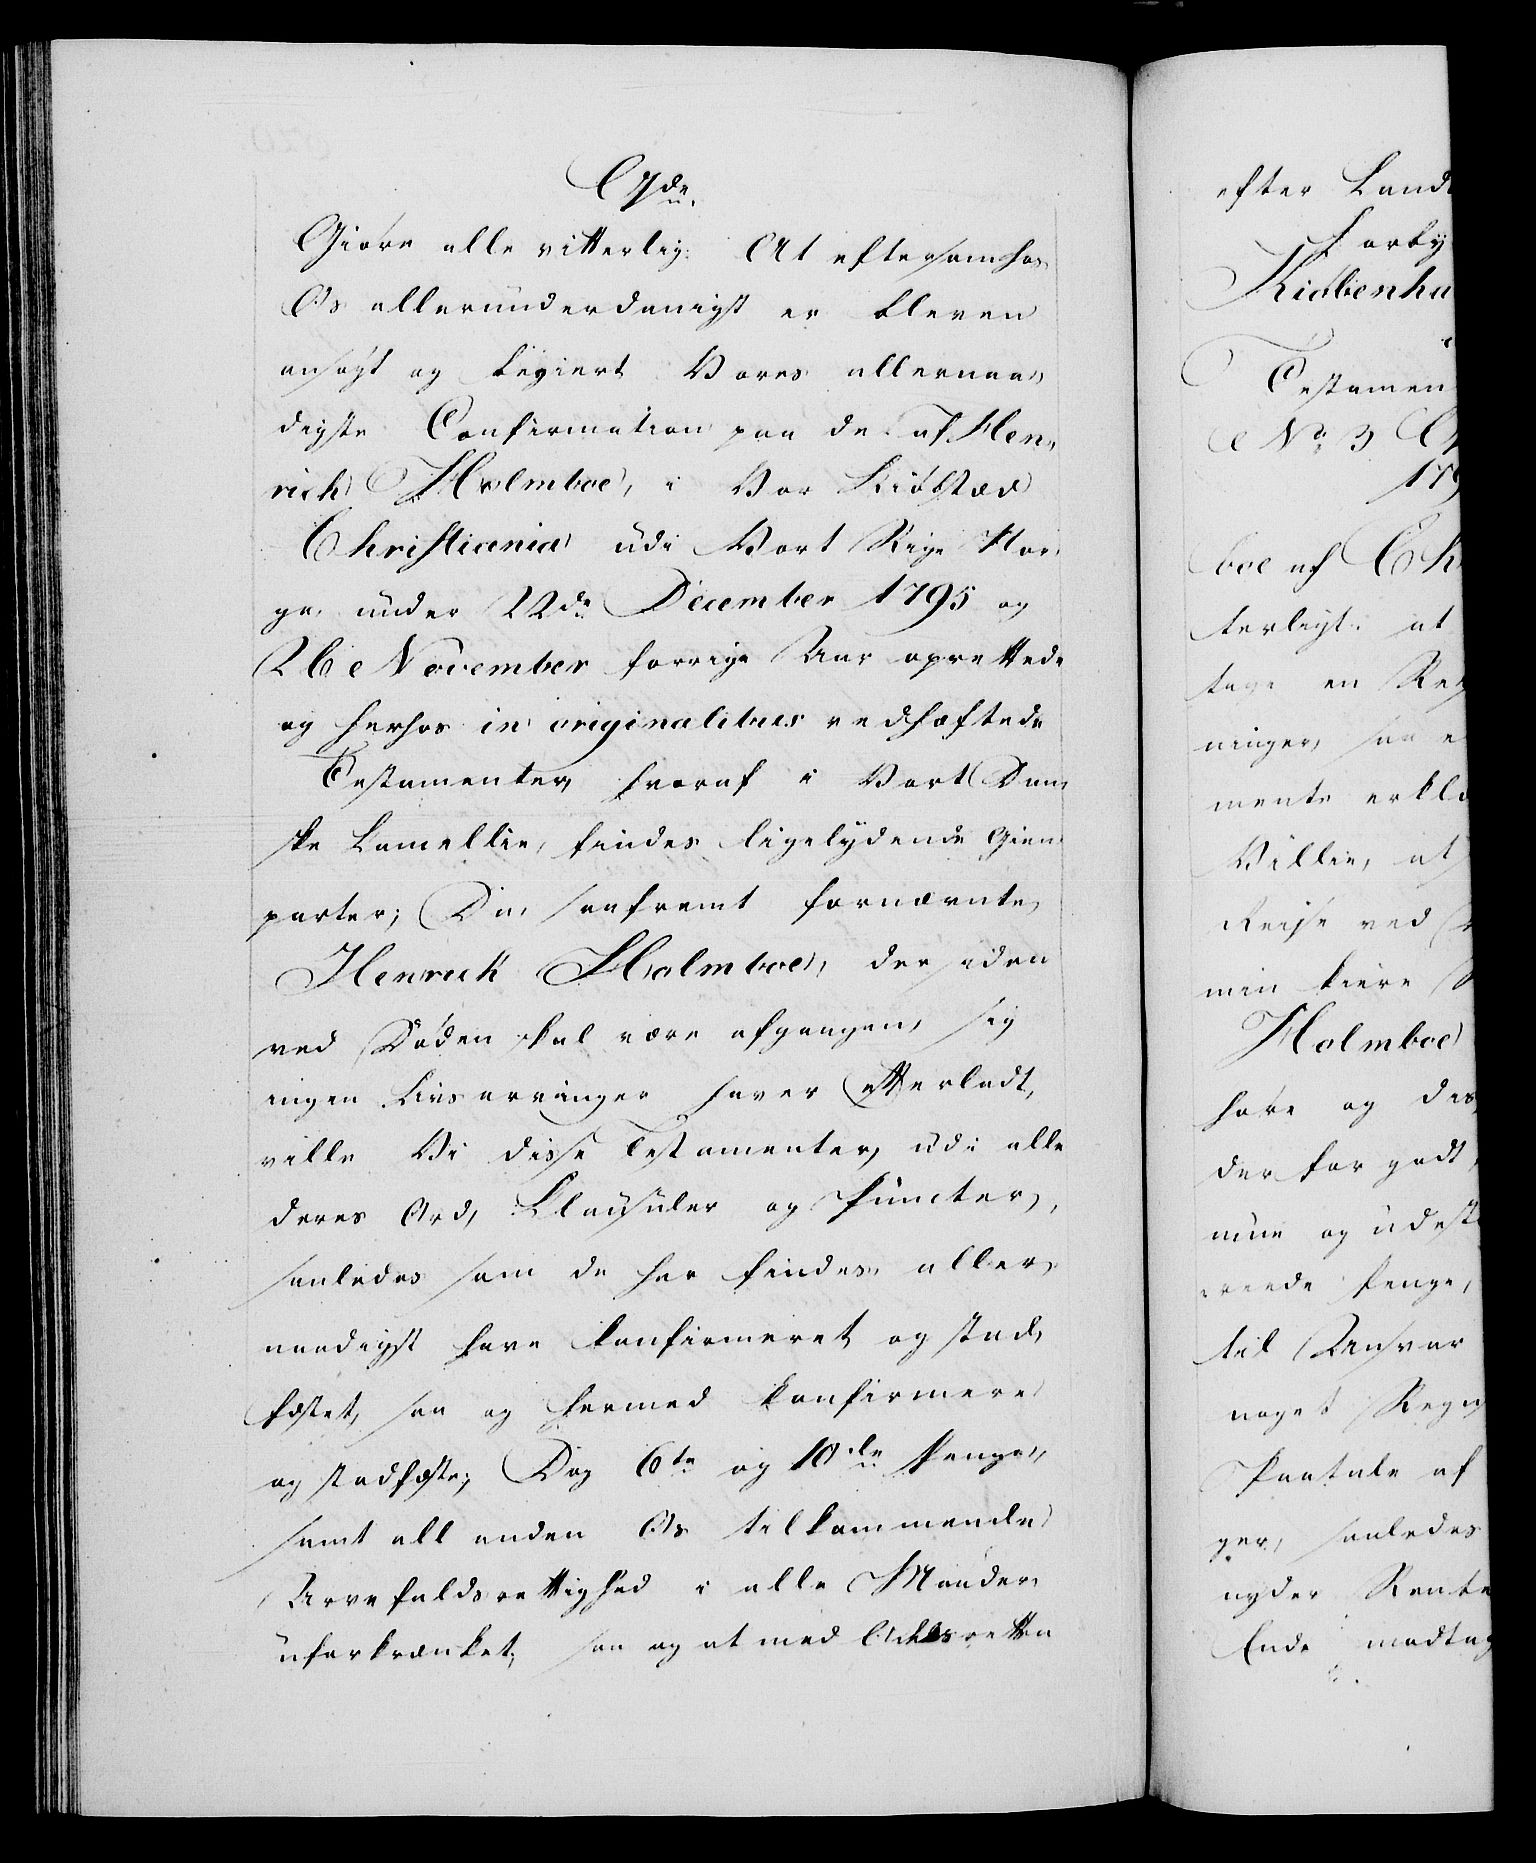 C 7de
Giøre alle vitterlig: At eftersom hos
Os allerunderdanigst er bleven
ansøgt og begiert Vores allernaa,,
digste Confirmation paa de af Hen,,
rich Holmboe, i Vor Kiøbstæd
Christiania udi Vort Rige Nor,,
ge under 22de December 1795 og
26 November forrige Aar oprettede
og herhos in originalibus vedhæftede
Testamenter, hvoraf i Vort Dan,,
ske Cancellie, findes ligelydende Gien,,
parter; Da, saafremt fornævnte
Henrich Holmboe, der siden
ved Døden skal være afgangen, sig
ingen Livsarvinger haver efterladt,
ville Vi disse Testamenter, udi alle
deres Ord, Klausuler og Puncter,
saaledes som de her findes, aller,,
naadigst have konfirmeret og stad,,
fæstet, saa og hermed konfirmere
og stadfæste; Dog 6te og 10de Penge,
samt all anden Os tilkommende
Arvefaldsrettighed i alle Maader
uforkrænket, saa og at med Odelsretten
efter Land
forby
Kiøbenha
Testamen
No 3
179
boe af Ch
terligt: at
tage en Re
ninger, saa e
mente erklæ
Villie, at
Reise ved
min kiere
Holmboe
høre og des
der for godt
mine og udest
rende Penge,
til Ansvar
noget Regn
Paatale af
ger, saaledes
nyder Rente
Ende modtag